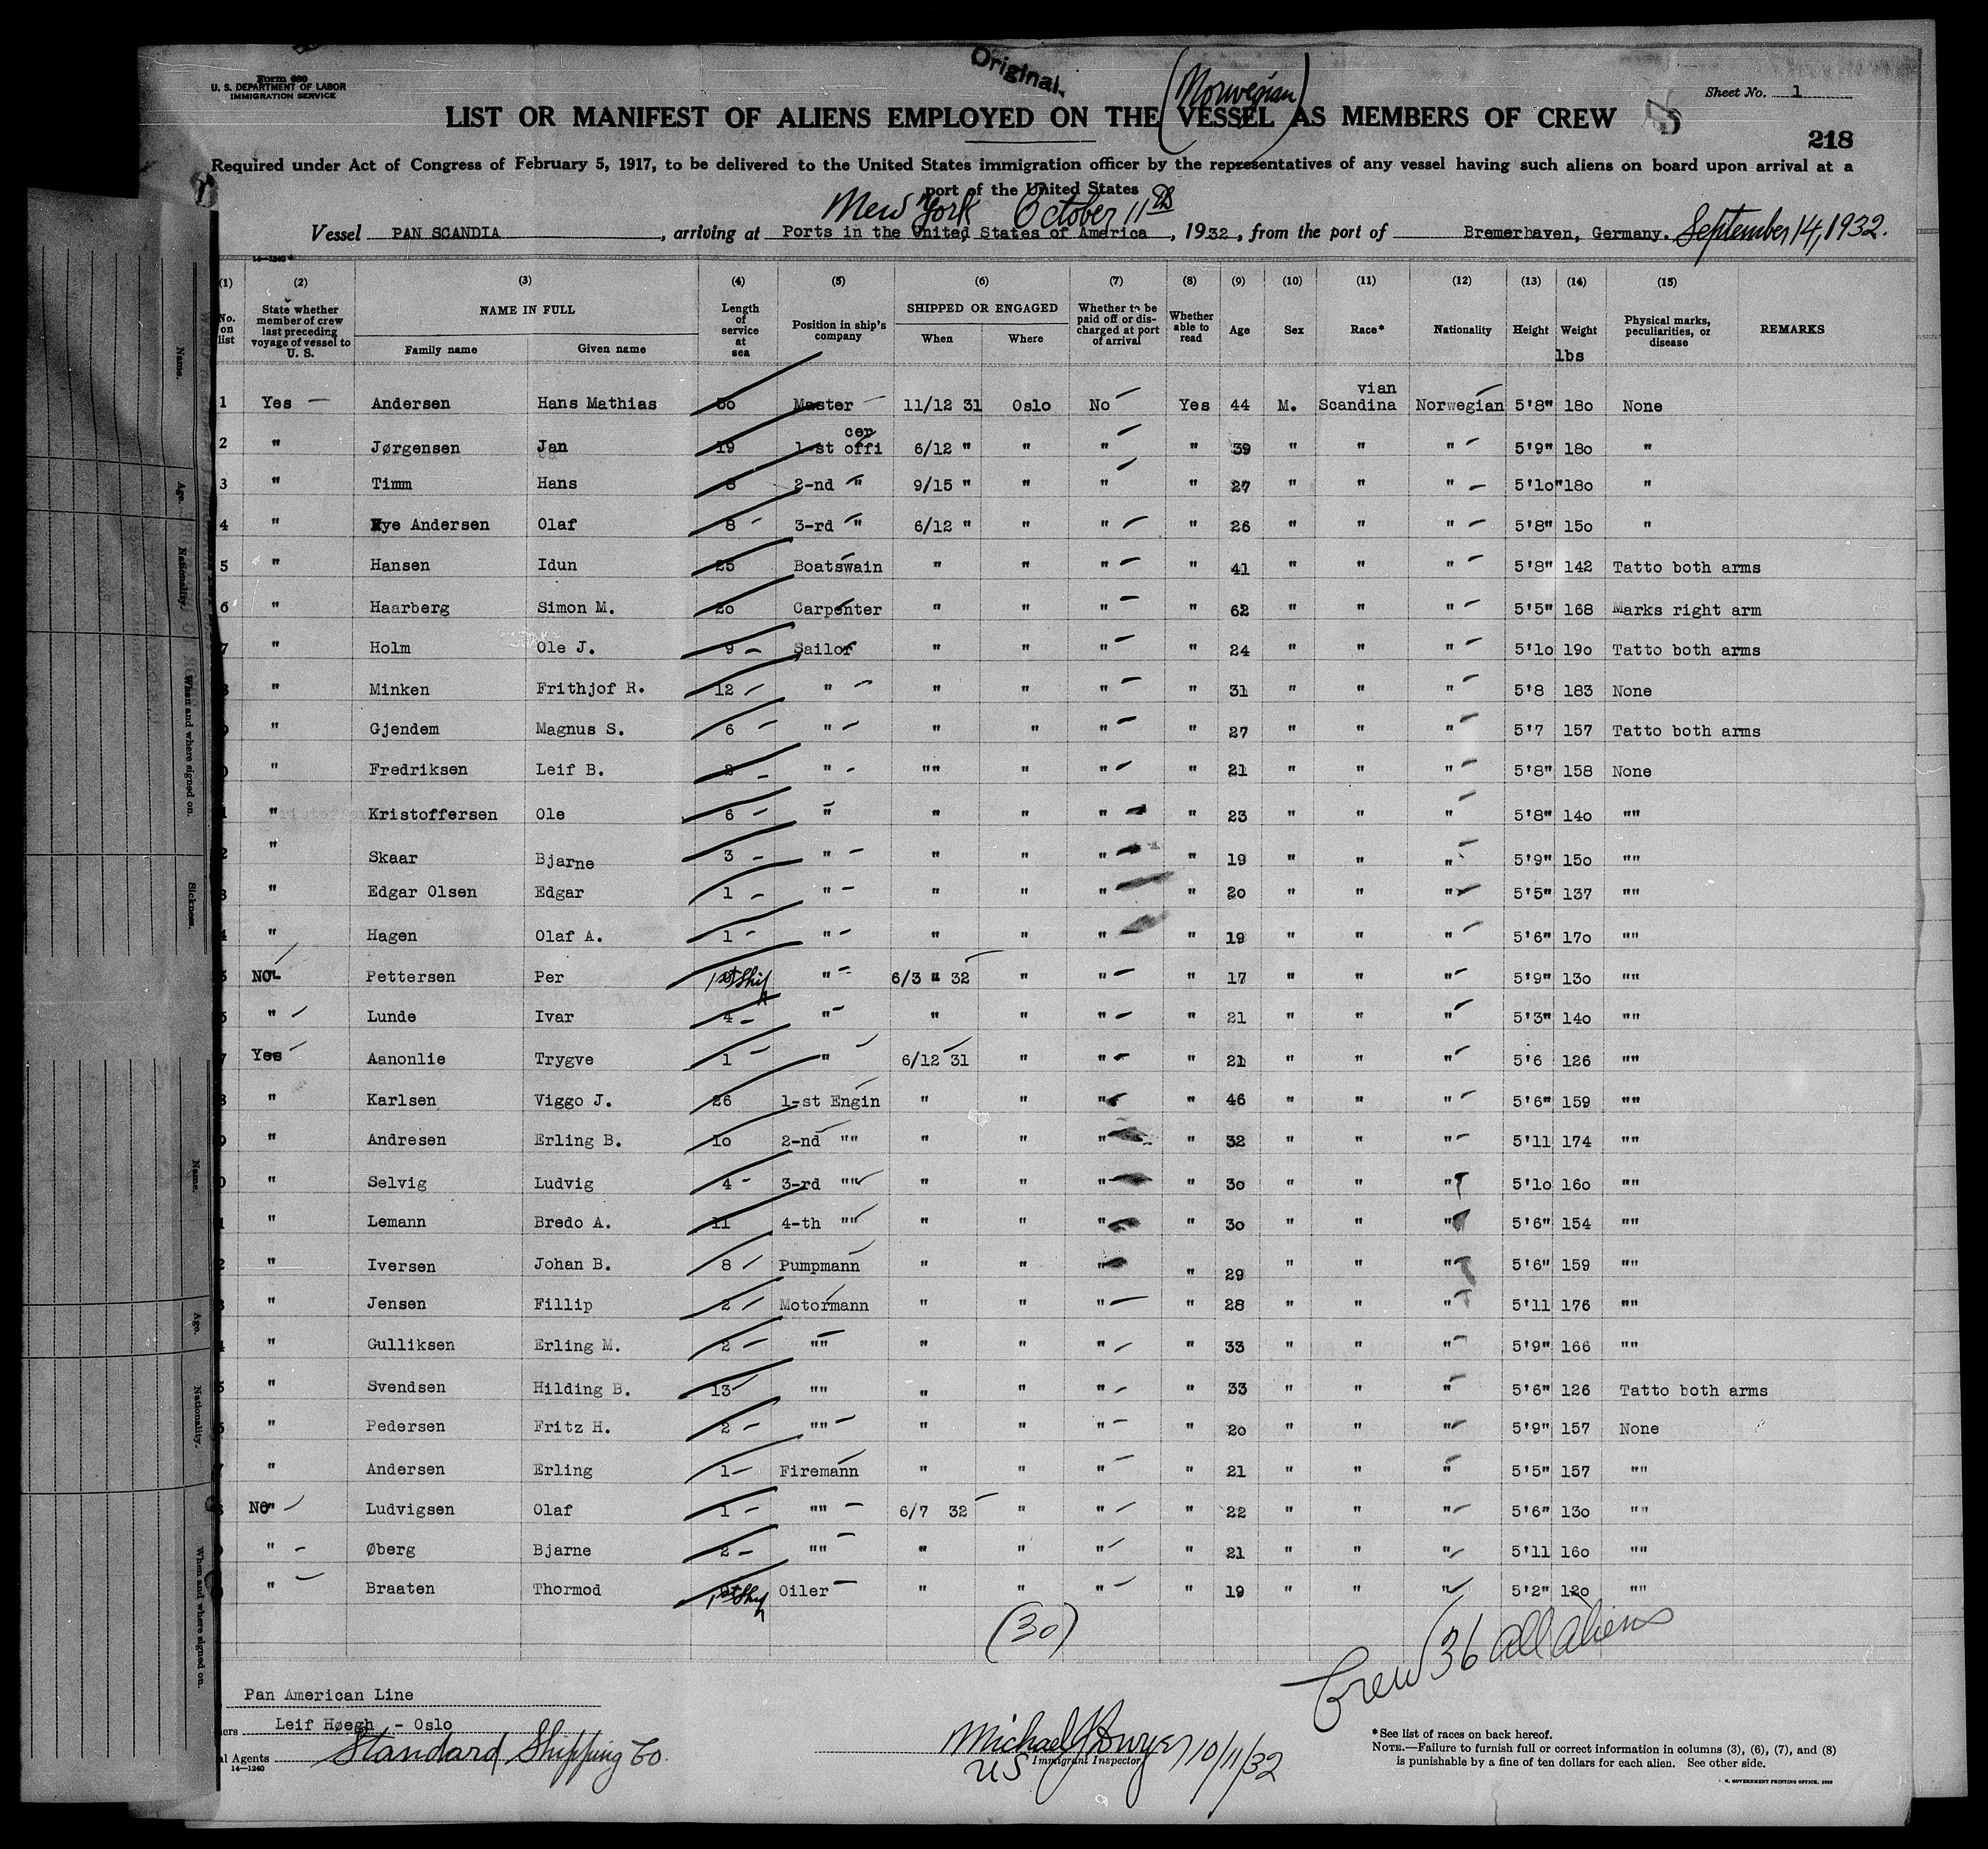 Form 680
U. S. DEPARTMENT OF LABOR
IMMIGRATION SERVICE
Original.
(Norwegian)
Sheet No. 1
LIST OR MANIFEST OF ALIENS EMPLOYED ON THE VESSEL AS MEMBERS OF CREW
218
Required under Act of Congress of February 5, 1917, to be delivered to the United States immigration officer by the representatives of any vessel having such aliens on board upon arrival at a
port of the United States
New York October 11th
Vessel PAN SCANDIA, arriving at Ports in the United States of America, 1932, from the port of Bremerhaven, Germany. September 14, 1932.
14—1240
(1) (2) (3) (4) (5) (6) (7) (8) (9) (10) (11) (12) (13) (14) (15)
No. on list
State whether member of crew last preceding voyage of vessel to U. S.
NAME IN FULL
Family name
Given name
Length of service at sea
Position in ship's company
SHIPPED OR ENGAGED
When
Where
Whether to be paid off or discharged at port of arrival
Whether able to read
Age
Sex
Race*
Nationality
Height
Weight
lbs
Physical marks, peculiarities, or disease
REMARKS
1 Yes — Andersen Hans Mathias 30 Master 11/12 31 Oslo No Yes 44 M. Scandinavian Norwegian 5'8" 180 None
2 " Jørgensen Jan 19 1-st officer 6/12 " " " " 39 " " " 5'9" 180 "
3 " Timm Hans 8 2-nd " 9/15 " " " " 27 " " " 5'10" 180 "
4 " Nye Andersen Olaf 8 3-rd " 6/12 " " " " 26 " " " 5'8" 150 "
5 " Hansen Idun 25 Boatswain " " " " 41 " " " 5'8" 142 Tatto both arms
6 " Haarberg Simon M. 20 Carpenter " " " " 62 " " " 5'5" 168 Marks right arm
7 " Holm Ole J. 9 Sailor " " " " 24 " " " 5'10 190 Tatto both arms
8 " Minken Frithjof R. 12 " " " " " 31 " " " 5'8 183 None
" Gjendem Magnus S. 6 " " " " " 27 " " " 5'7 157 Tatto both arms
" Fredriksen Leif B. 2 " "" " " " 21 " " " 5'8" 158 None
" Kristoffersen Ole 6 " " " " " 23 " " " 5'8" 140 ""
" Skaar Bjarne 3 " " " " " 19 " " " 5'9" 150 ""
" Edgar Olsen Edgar 1 " " " " " 20 " " " 5'5" 137 ""
" Hagen Olaf A. 1 " " " " " 19 " " " 5'6" 170 ""
No Pettersen Per 1st Ship " 6/3 " 32 " " " 17 " " " 5'9" 130 ""
" Lunde Ivar 4 " " " " " 21 " " " 5'3" 140 ""
Yes Aanonlie Trygve 1 " 6/12 31 " " " 21 " " " 5'6 126 ""
" Karlsen Viggo J. 26 1-st Engin " " " " 46 " " " 5'6" 159 ""
" Andresen Erling B. 10 2-nd "" " " " " 32 " " " 5'11 174 ""
" Selvig Ludvig 4 3-rd "" " " " " 30 " " " 5'10 160 ""
" Lemann Bredo A. 11 4-th "" " " " " 30 " " " 5'6" 154 ""
" Iversen Johan B. 8 Pumpmann " " " " 29 " " " 5'6" 159 ""
" Jensen Fillip 2 Motormann " " " " 28 " " " 5'11 176 ""
" Gulliksen Erling M. 2 "" " " " " 33 " " " 5'9" 166 ""
" Svendsen Hilding B. 13 "" " " " " 33 " " " 5'6" 126 Tatto both arms
" Pedersen Fritz H. 2 "" " " " " 20 " " " 5'9" 157 None
" Andersen Erling 1 Firemann " " " " 21 " " " 5'5" 157 ""
No Ludvigsen Olaf 1 "" 6/7 32 " " " 22 " " " 5'6" 130 ""
" Øberg Bjarne 2 "" " " " " 21 " " " 5'11 160 ""
" Braaten Thormod 1st Ship Oiler " " " " 19 " " " 5'2" 120 ""
(30)
Crew 36 all aliens
Pan American Line
Leif Høegh - Oslo
Agents Standard Shipping Co.
14—1240
Michael J Dwyer 10/11/32
US Immigrant Inspector
*See list of races on back hereof.
NOTE.—Failure to furnish full or correct information in columns (3), (6), (7), and (8)
is punishable by a fine of ten dollars for each alien. See other side.
GOVERNMENT PRINTING OFFICE
Name.
Age.
Nationality.
When and where signed on.
Sickness.
Name.
Age.
Nationality.
When and where signed on.